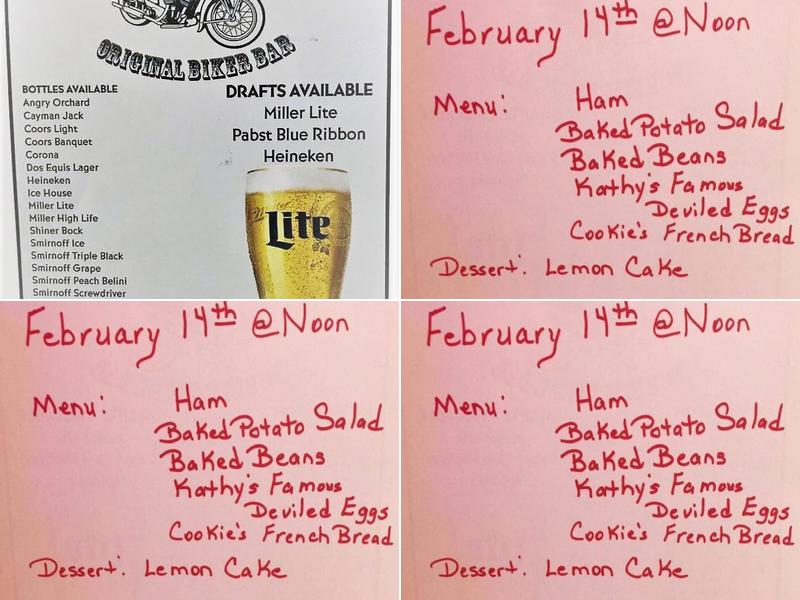 ORIGINAL BIKER BAR
BOTTLES AVAILABLE
Angry Orchard
Cayman Jack
Coors Light
Coors Banquet
Corona
Dos Equis Lager
Heineken
Ice House
Miller Lite
Miller High Life
Shiner Bock
Smirnoff Ice
Smirnoff Triple Black
Smirnoff Grape
Smirnoff Peach Belini
Smirnoff Screwdriver
DRAFTS AVAILABLE
Miller Lite
Pabst Blue Ribbon
Heineken
Lite
February 14th @ Noon
Menu: Ham
Baked Potato Salad
Baked Beans
Kathy's Famous
Deviled Eggs
Cookie's French Bread
Dessert: Lemon Cake
February 14th @ Noon
Menu: Ham
Baked Potato Salad
Baked Beans
Kathy's Famous
Deviled Eggs
Cookie's French Bread
Dessert: Lemon Cake
February 14th @ Noon
Menu: Ham
Baked Potato Salad
Baked Beans
Kathy's Famous
Deviled Eggs
Cookie's French Bread
Dessert: Lemon Cake